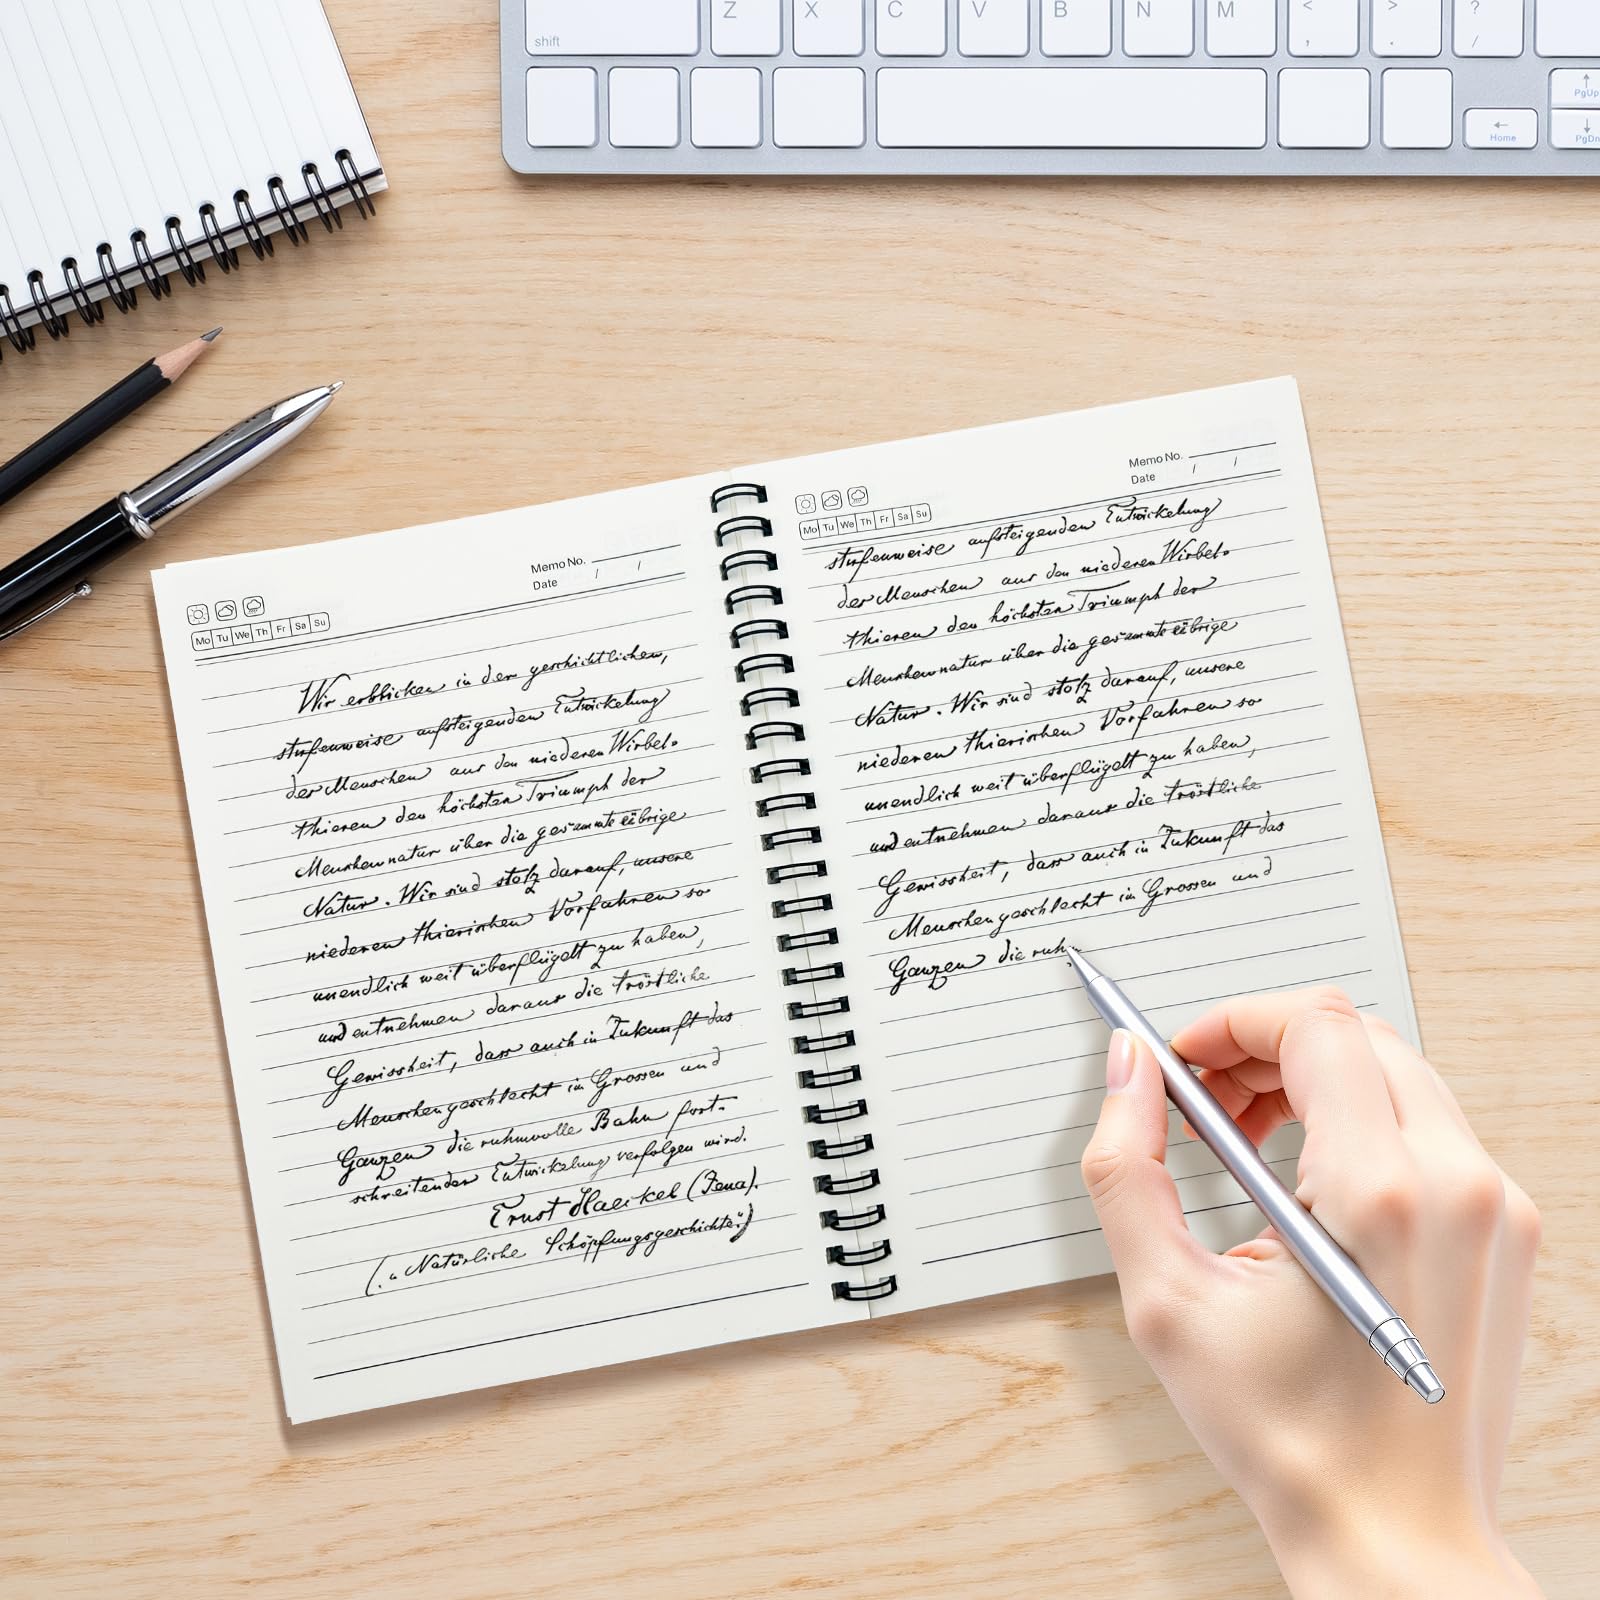 shift
Z
X
C
V
B
N
M
<
,
>
.
?
/
PgUp
Home
PgDn
Memo No.
Date / /
Mo Tu We Th Fr Sa Su
Wir erblicken in der geschichtlichen,
stufenweise aufsteigenden Entwickelung
der Menschen aus den niederen Wirbel-
thieren den höchsten Triumph der
Menschennatur über die gesammte übrige
Natur. Wir sind stolz darauf, unsere
niederen thierischen Vorfahren so
unendlich weit überflügelt zu haben,
und entnehmen daraus die tröstliche
Gewissheit, dass auch in Zukunft das
Menschengeschlecht im Grossen und
Ganzen die ruhmvolle Bahn fort-
schreitender Entwickelung verfolgen wird.
Ernst Haeckel (Jena).
(„Natürliche Schöpfungsgeschichte“)
Memo No.
Date / /
Mo Tu We Th Fr Sa Su
stufenweise aufsteigenden Entwickelung
der Menschen aus den niederen Wirbel-
thieren den höchsten Triumph der
Menschennatur über die gesammte übrige
Natur. Wir sind stolz darauf, unsere
niederen thierischen Vorfahren so
unendlich weit überflügelt zu haben,
und entnehmen daraus die tröstliche
Gewissheit, dass auch in Zukunft das
Menschengeschlecht im Grossen und
Ganzen die ruhm